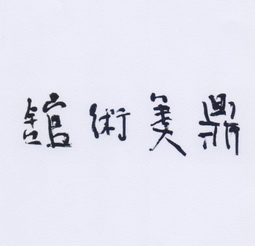 鼎美術館